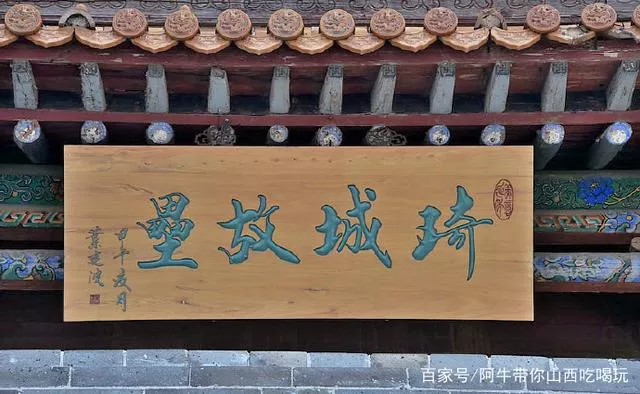 琦城故壘
甲午夏月
百家号/阿牛带你山西吃喝玩